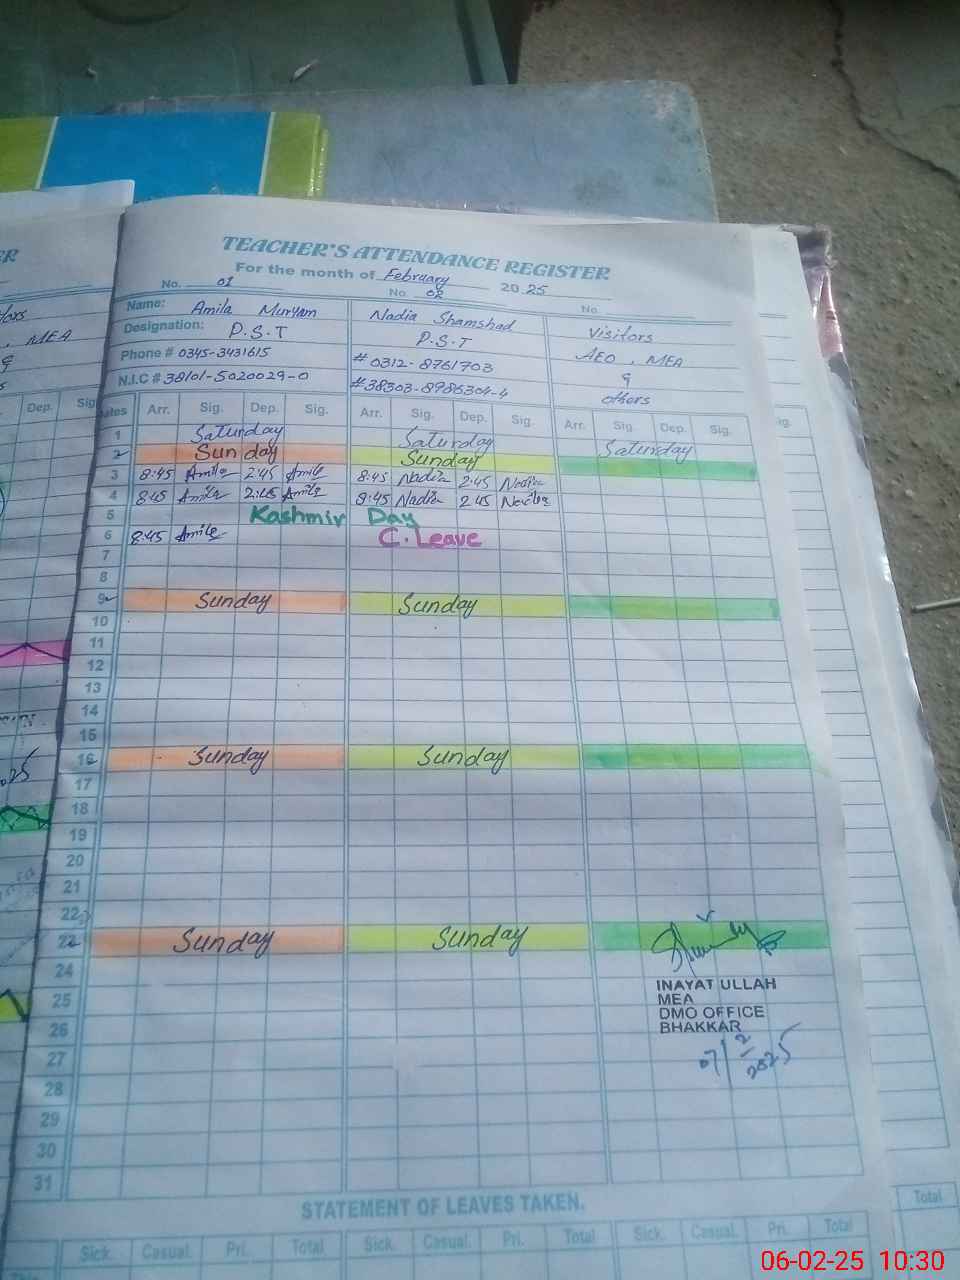 TEACHER'S ATTENDANCE REGISTER
For the month of February 2025
No. 01 No. 02 No.
Name: Amila Muryam Nadia Shamshad Visitors
Designation: P.S.T P.S.T AEO, MEA
Phone # 0345-3431615 # 0312-8761703 &
N.I.C # 38101-5020029-0 # 38303-8986304-4 others
Dates Arr. Sig. Dep. Sig. Arr. Sig. Dep. Sig. Arr. Sig. Dep. Sig.
1 Saturday Saturday Saturday
2 Sunday Sunday
3 8:45 Amila 2:45 Amila 8:45 Nadia 2:45 Nadia
4 8:45 Amila 2:45 Amila 8:45 Nadia 2:45 Nadia
5 Kashmir Day
6 8:45 Amila C. Leave
7
8
9 Sunday Sunday
10
11
12
13
14
15
16 Sunday Sunday
17
18
19
20
21
22
23 Sunday Sunday
24
25
26
27
28
29
30
31
INAYAT ULLAH
MEA
DMO OFFICE
BHAKKAR
07/2/2025
STATEMENT OF LEAVES TAKEN.
Sick. Casual. Pri. Total Sick. Casual. Pri. Total Sick. Casual. Pri. Total
MEA
Dep. Sig
Total
06-02-25 10:30